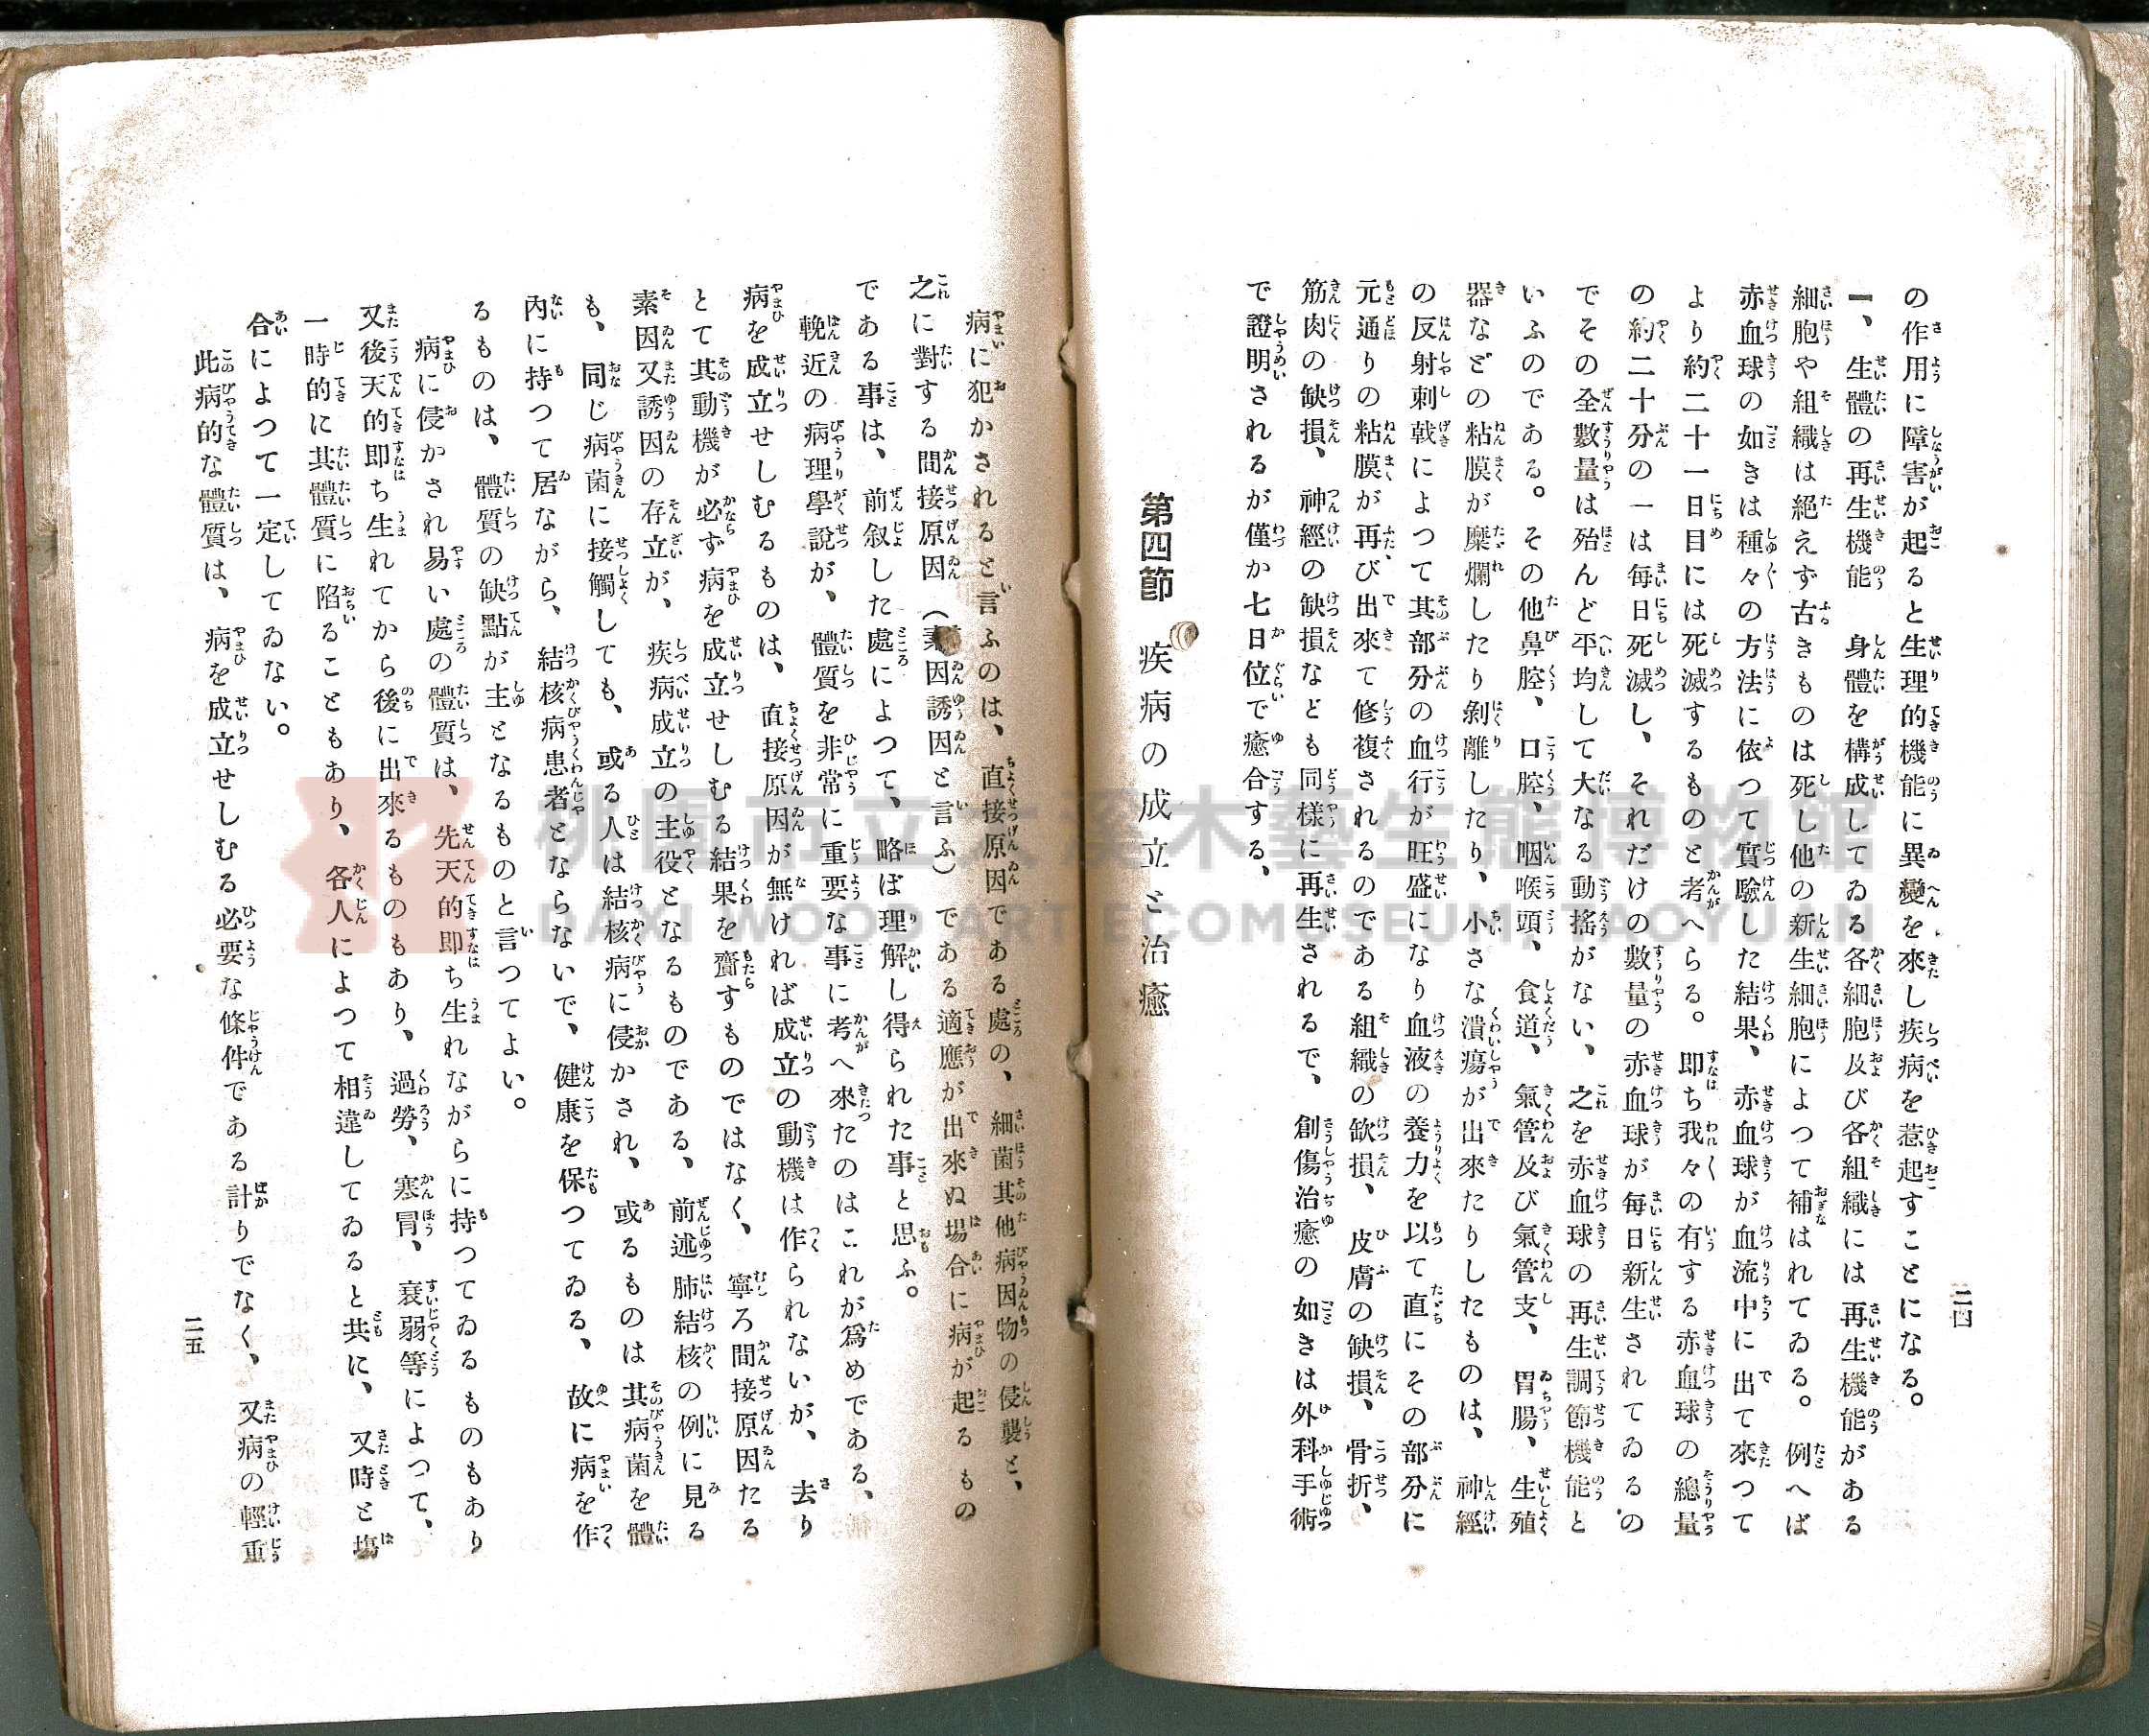 二四
の作用に障害が起ると生理的機能に異變を來し疾病を惹起すことになる。
一、生體の再生機能　身體を構成してゐる各細胞及び各組織には再生機能がある
細胞や組織は絶えず古きものは死し他の新生細胞によつて補はれてゐる。例へば
赤血球の如きは種々の方法に依つて實驗した結果、赤血球が血流中に出て來つて
より約二十一日目には死滅するものと考へらる。即ち我々の有する赤血球の總量
の約二十分の一は每日死滅し、それだけの數量の赤血球が每日新生されてゐるの
でその全數量は殆んど平均して大なる動搖がない、之を赤血球の再生調節機能と
いふのである。その他鼻腔、口腔、咽喉頭、食道、氣管及び氣管支、胃腸、生殖
器などの粘膜が糜爛したり剝離したり、小さな潰瘍が出來たりしたものは、神經
の反射刺戟によつて其部分の血行が旺盛になり血液の養力を以て直にその部分に
元通りの粘膜が再び出來て修複されるのである組織の欠損、皮膚の缺損、骨折、
筋肉の缺損、神經の缺損なども同樣に再生されるで、創傷治癒の如きは外科手術
で證明されるが僅か七日位で癒合する、
第四節　疾病の成立と治癒
病に犯かされると言ふのは、直接原因である處の、細菌其他病因物の侵襲と、
之に對する間接原因（素因誘因と言ふ）である適應が出來ぬ場合に病が起るもの
である事は、前叙した處によつて、略ぼ理解し得られた事と思ふ。
輓近の病理學說が、體質を非常に重要な事に考へ來たのはこれが爲めである、
病を成立せしむるものは、直接原因が無ければ成立の動機は作られないが、去り
とて其動機が必ず病を成立せしむる結果を齎すものではなく、寧ろ間接原因たる
素因又誘因の存立が、疾病成立の主役となるものである、前述肺結核の例に見る
も、同じ病菌に接觸しても、或る人は結核病に侵かされ、或るものは其病菌を體
內に持つて居ながら、結核病患者とならないで、健康を保つてゐる、故に病を作
るものは、體質の缺點が主となるものと言つてよい。
病に侵かされ易い處の體質は、先天的即ち生れながらに持つてゐるものもあり
又後天的即ち生れてから後に出來るものもあり、過勞、寒冒、衰弱等によつて、
一時的に其體質に陷ることもあり、各人によつて相違してゐると共に、又時と塲
合によつて一定してゐない。
此病的な體質は、病を成立せしむる必要な條件である計りでなく、又病の輕重
二五
桃園市立大溪木藝生態博物館
DAXI WOOD ART ECOMUSEUM, TAOYUAN